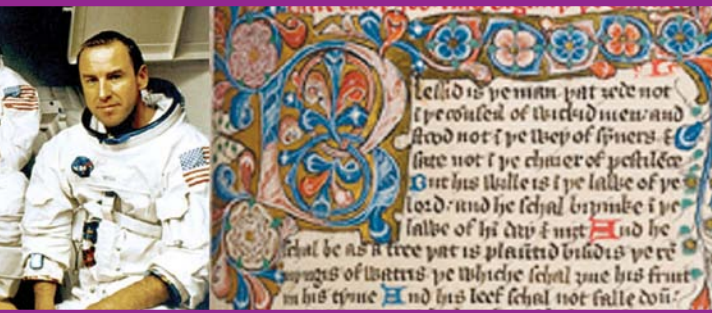 NASA
Blessid is þe man þat ȝede not
ī þe counseil of wickid men: and
stood not ī þe wey of synners &
sate not ī þe chaier of pestilēce
But his wille is ī þe lawe of þe
lord: and he schal biþinke ī þe
lawe of hī day & niȝt And he
schal be as a tree þat is plauntid bisidis þe
of watris þe whiche schal ȝiue his fruit
in his tyme And his leef schal not falle doū: